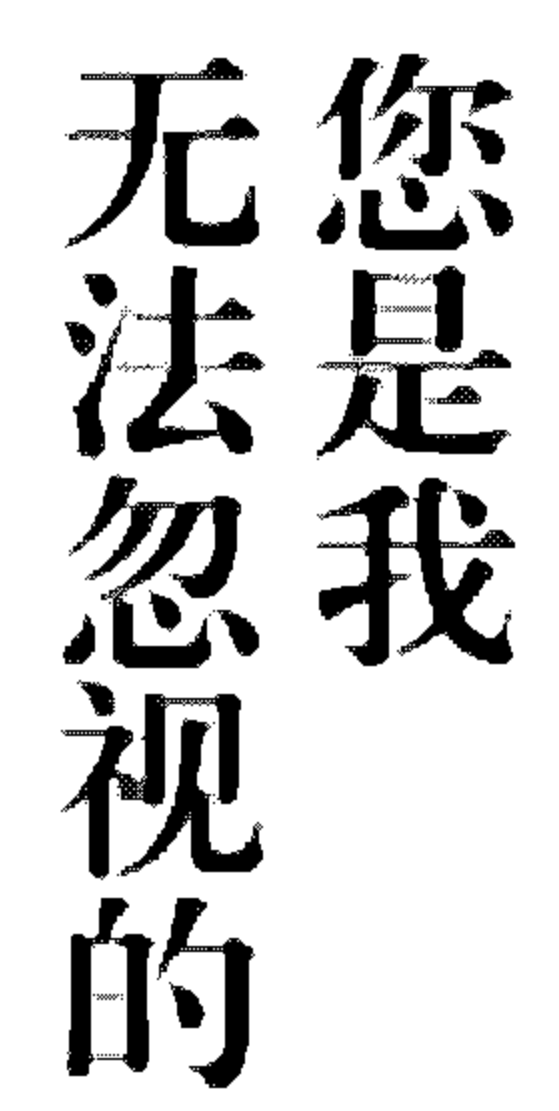 您是我
无法忽视的